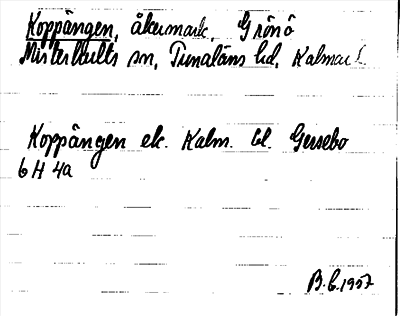 Koppängen, åkermark, Grönö
Misterhults sn, Tunaläns hd, Kalmar L.
Koppängen ek. Kalm. bl. Gersebo
6 H 4a
B.E. 1957